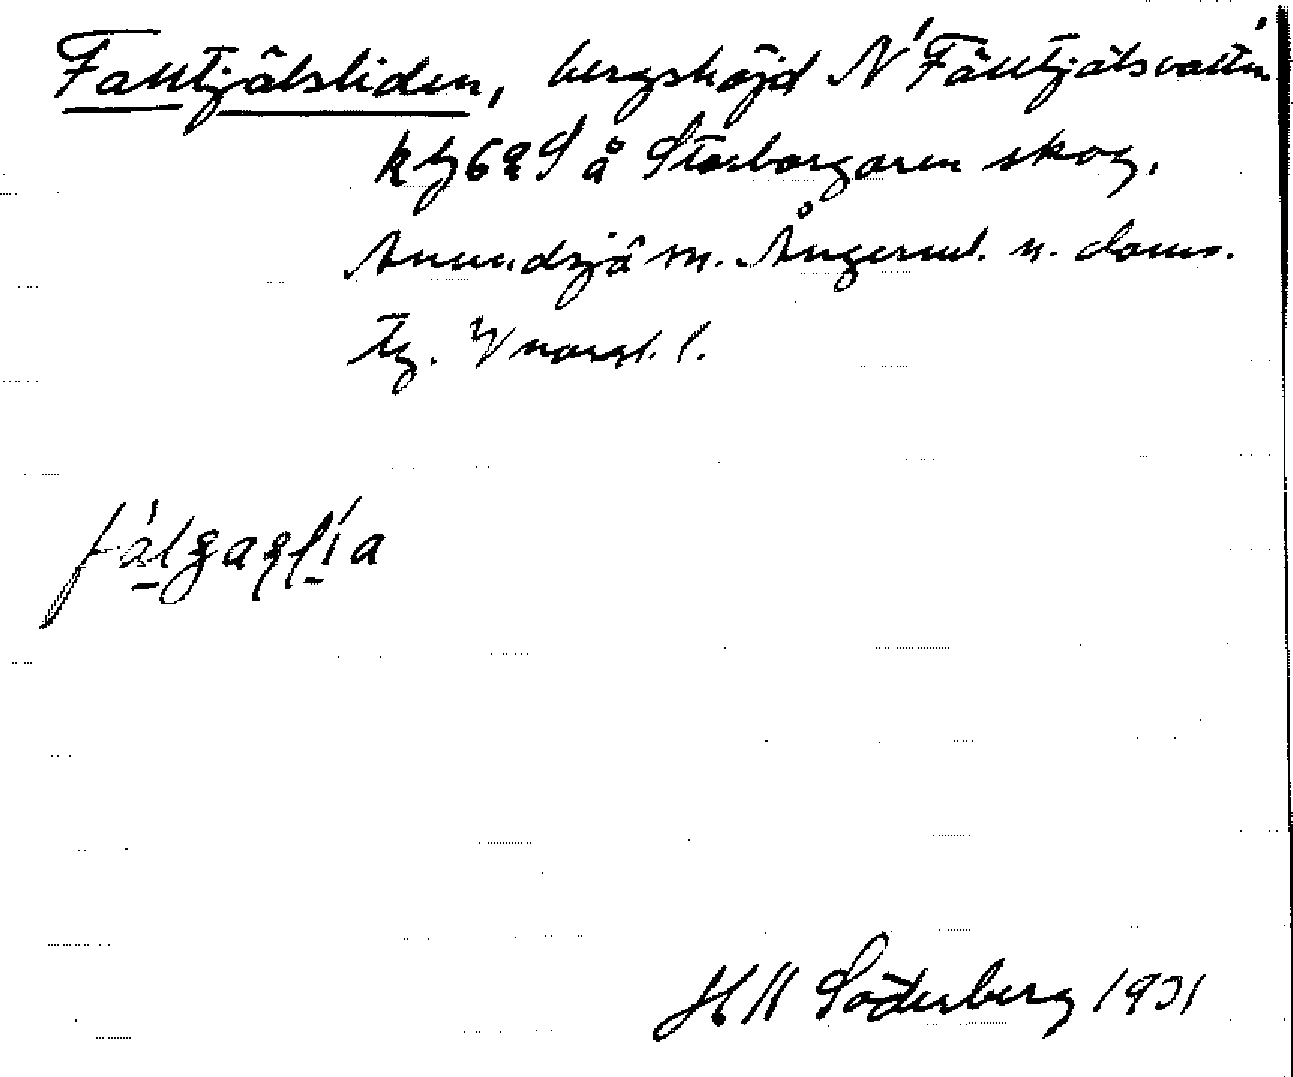 Fälltjälsliden, bergshöjd N Fälltjälsvattn.
å Storborgaren skog,
Anundsjö sn. Ångerml. n. doms.
tg. V norrl. l.
H M Söderberg 1931